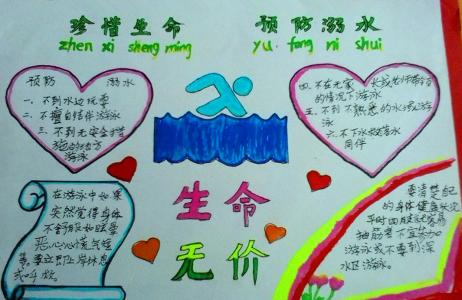 珍惜生命 预防溺水
zhen xi sheng ming yu fang ni shui
预防 溺水
一、不到水边玩耍
二、不擅自结伴游泳
三、不到无安全措
施的地方
游泳
四、不在无家长或老师带领
的情况下游泳
五、不到不熟悉的水域游
泳
六、不下水救落水
同伴
生命
无价
在游泳中如果
突然觉得身体
不舒服如眩晕
恶心心慌气短
等,要立即上岸休息
或呼救
要清楚自己
的身体健康状况
平时四肢就容易
抽筋者不宜参加
游泳或不要到深
水区游泳。